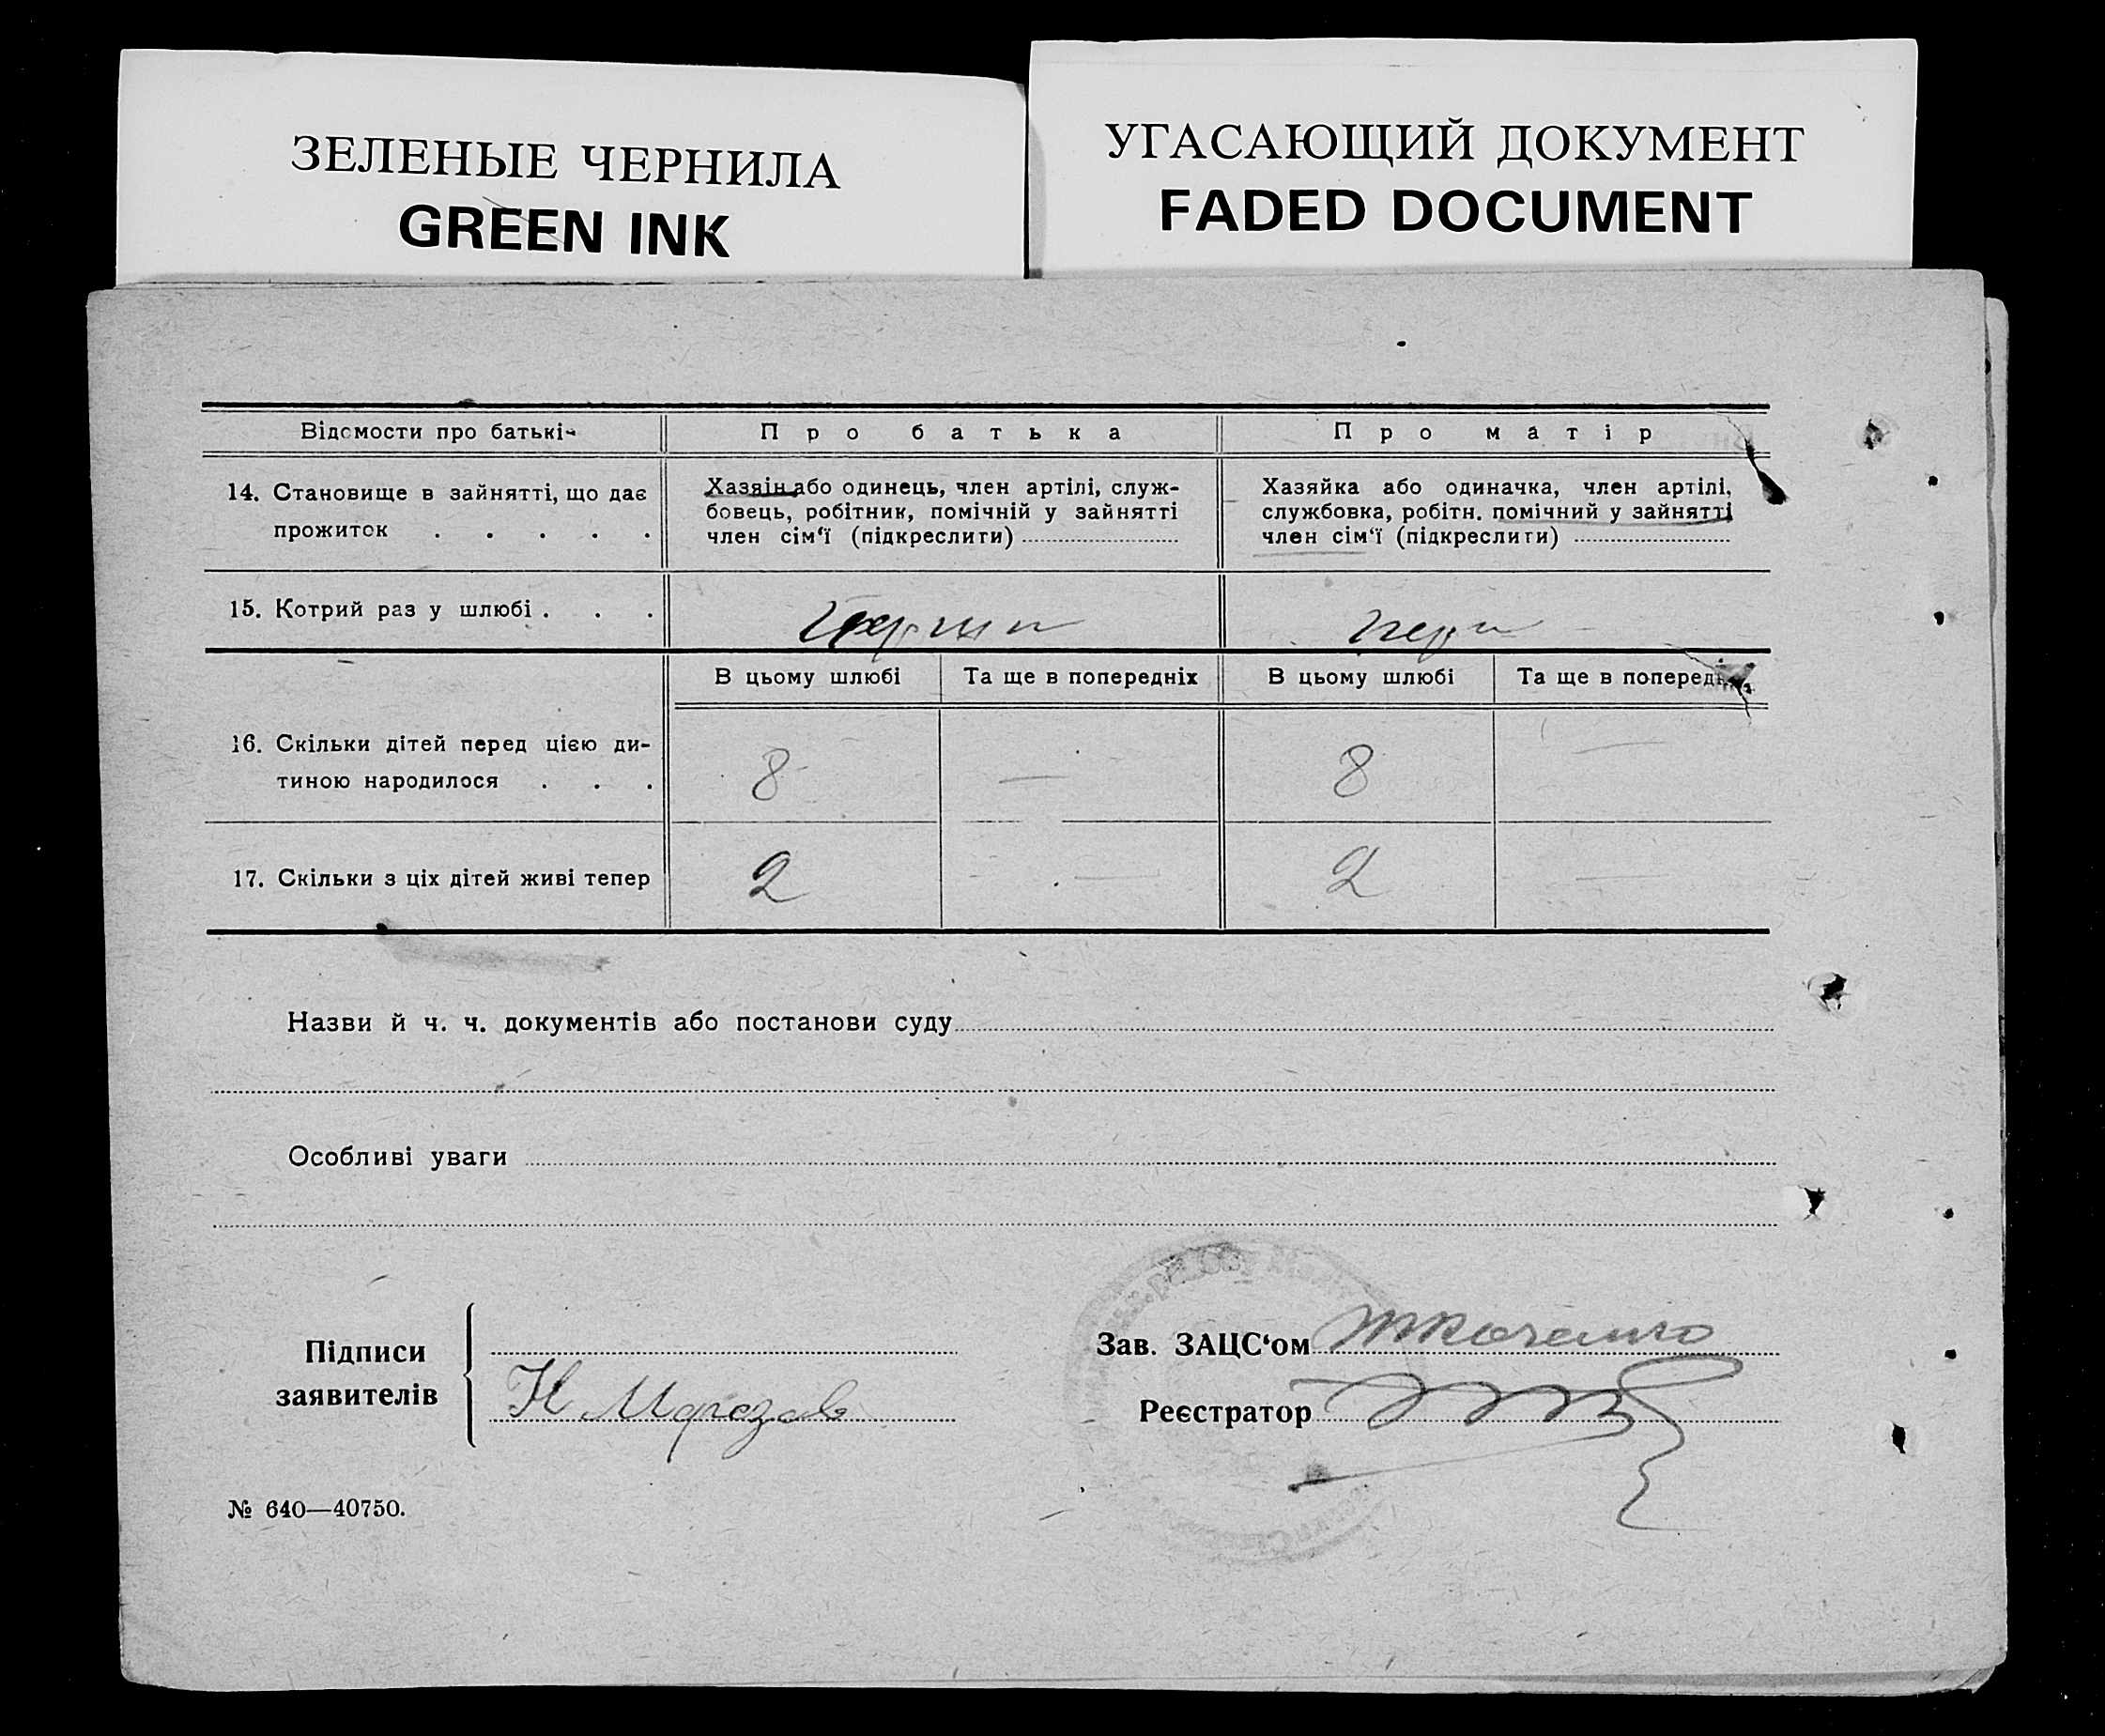 ЗЕЛЕНЫЕ ЧЕРНИЛА
GREEN INK
УГАСАЮЩИЙ ДОКУМЕНТ
FADED DOCUMENT
Відомости про батьків
Про батька
Про матір
14. Становище в зайнятті, що дає
прожиток . . . . .
Хазяін або одинець, член артілі, служ-
бовець, робітник, помічній у зайнятті
член сім‘ї (підкреслити)
Хазяйка або одиначка, член артілі,
службовка, робітн. помічний у зайнятті
член сім‘ї (підкреслити)
15. Котрий раз у шлюбі . . .
перший
В цьому шлюбі
Та ще в попередніх
В цьому шлюбі
Та ще в поперед
16. Скільки дітей перед цією ди-
тиною народилося . . .
8 — 8 —
17. Скільки з ціх дітей живі тепер
2 — 2 —
Назви й ч. ч. документів або постанови суду
Особливі уваги
Підписи
заявителів
Н Морозов
Зав. ЗАЦС‘ом
Реєстратор
№ 640—40750.